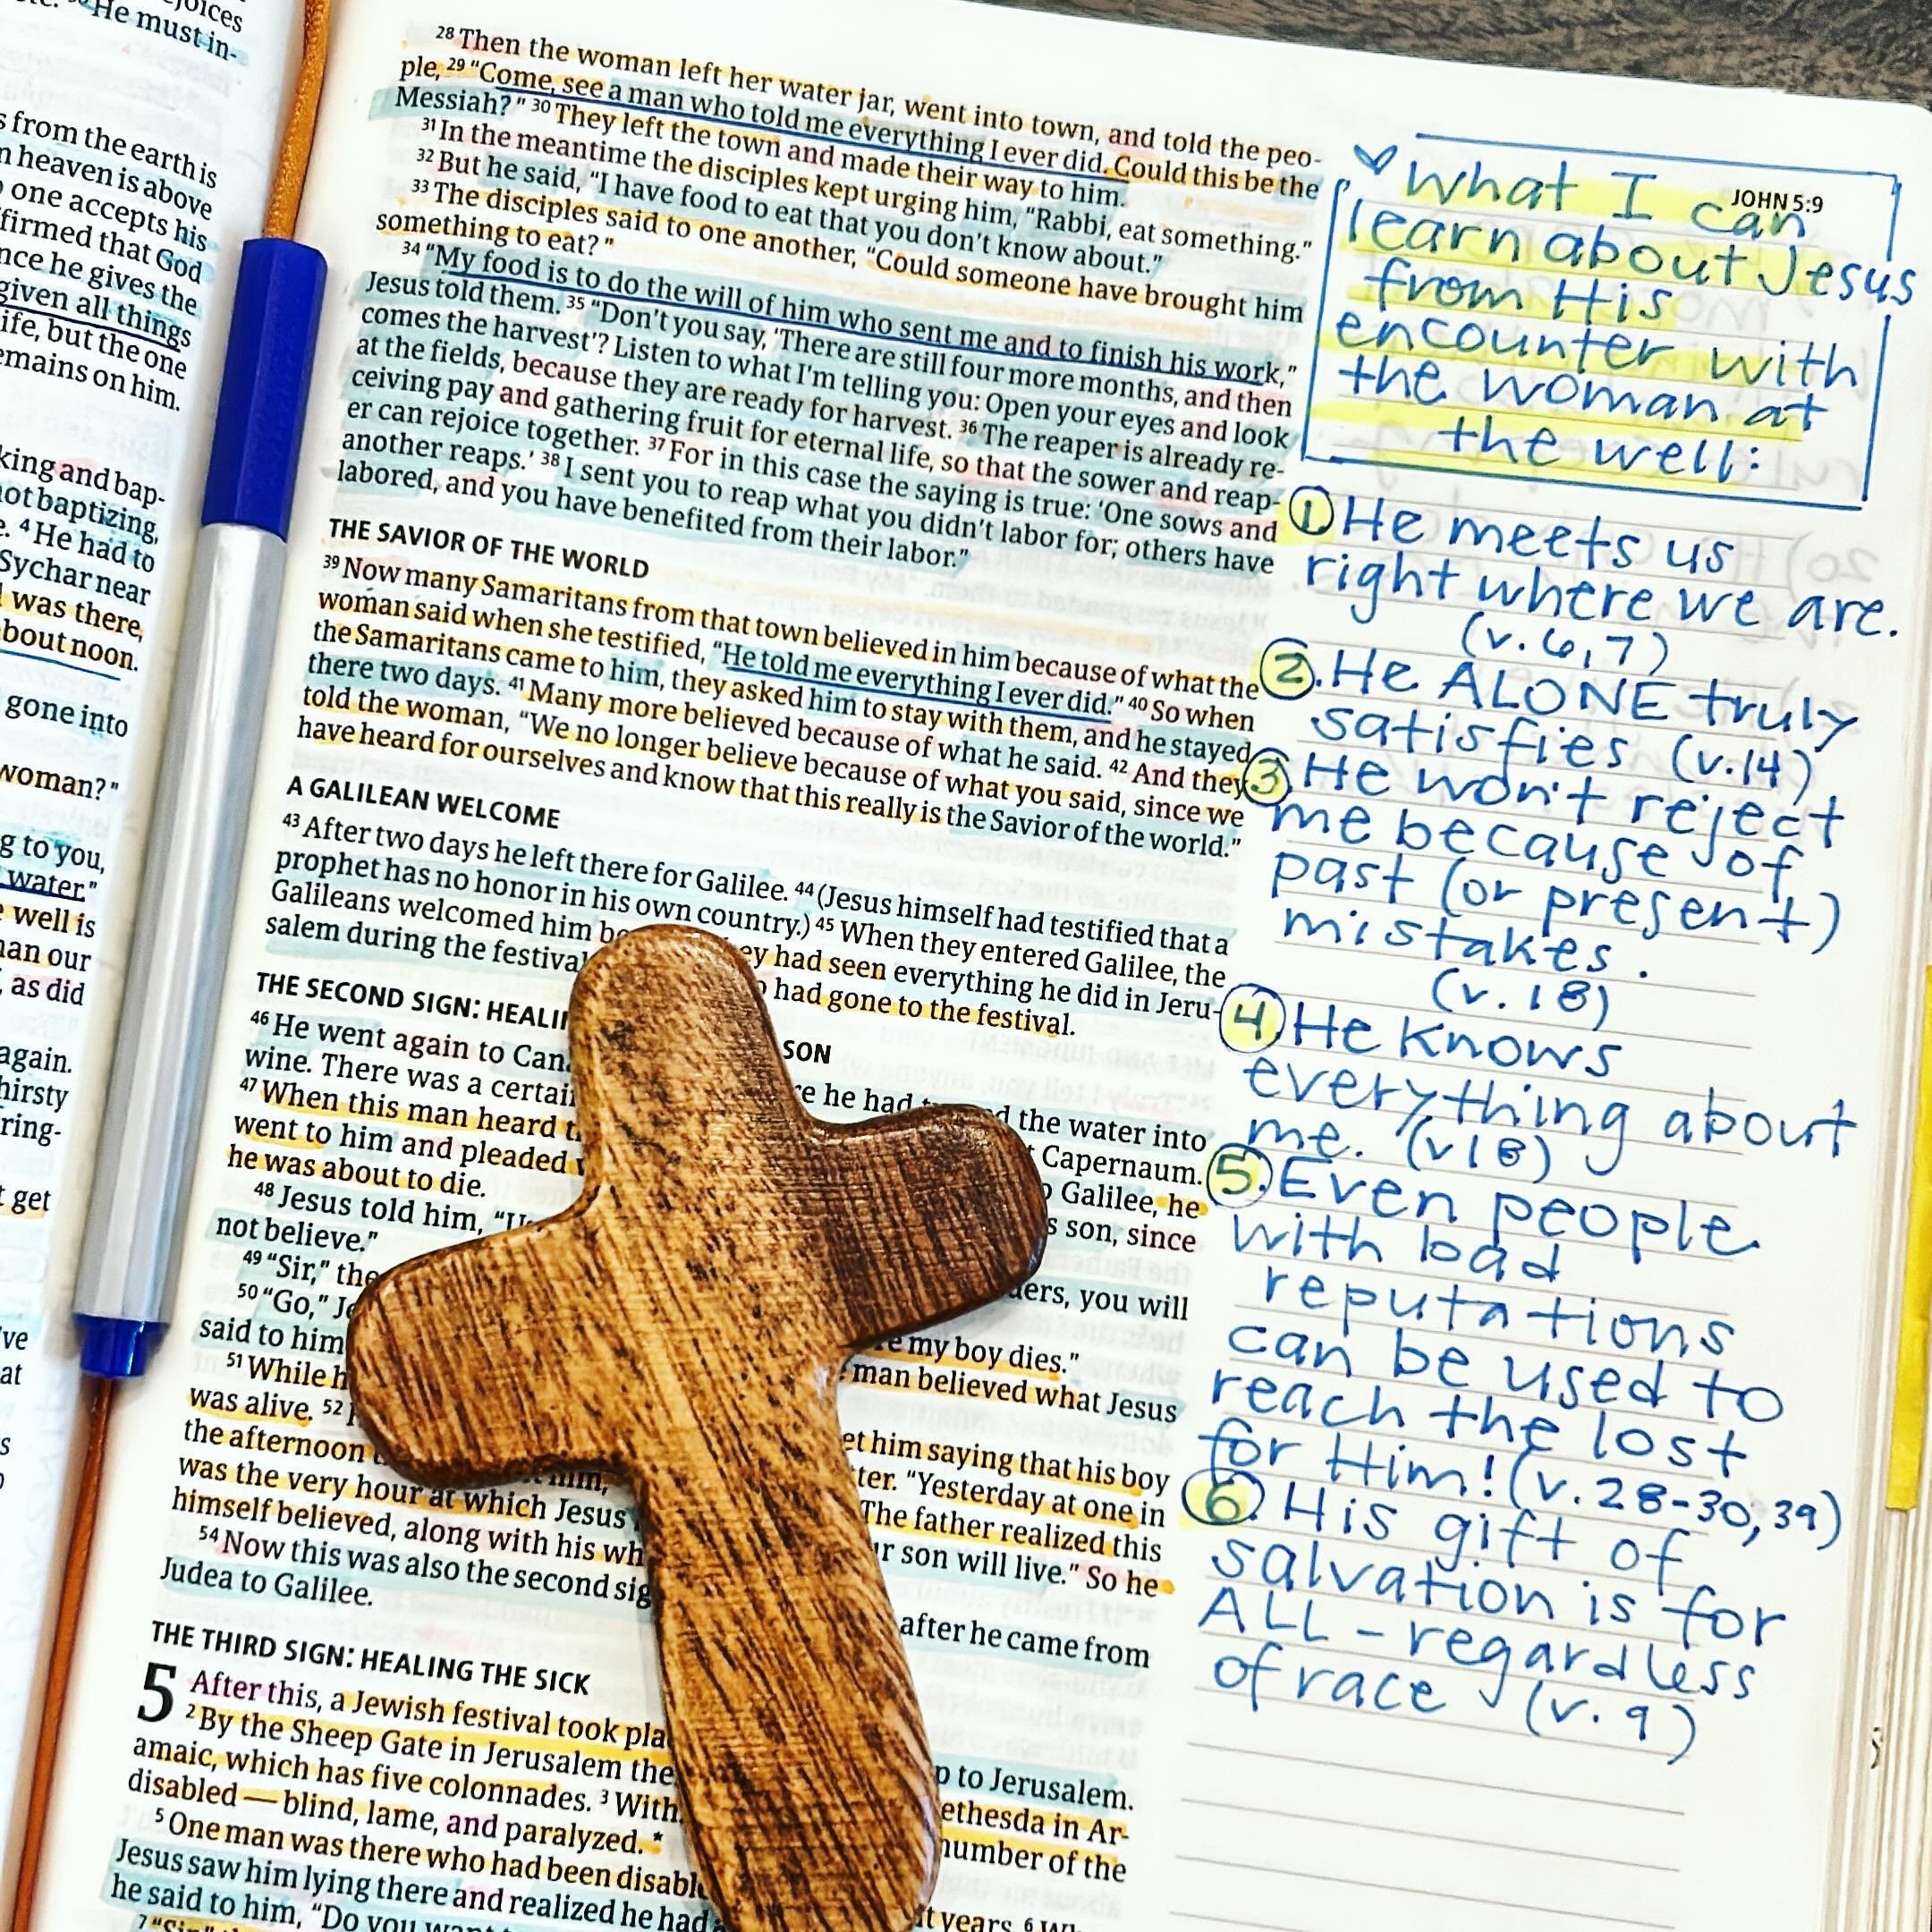 ejoices
He must in-
s from the earth is
n heaven is above
o one accepts his
firmed that God
nce he gives the
given all things
ife, but the one
emains on him.
king and bap-
not baptizing,
e. 4 He had to
Sychar near
l was there,
about noon.
gone into
woman?"
g to you,
water."
e well is
nan our
, as did
again.
hirsty
ring-
t get
've
at
s
28 Then the woman left her water jar, went into town, and told the peo-
ple, 29 "Come, see a man who told me everything I ever did. Could this be the
Messiah?" 30 They left the town and made their way to him.
31 In the meantime the disciples kept urging him, "Rabbi, eat something."
32 But he said, "I have food to eat that you don't know about."
33 The disciples said to one another, "Could someone have brought him
something to eat?"
34 "My food is to do the will of him who sent me and to finish his work,"
Jesus told them. 35 "Don't you say, 'There are still four more months, and then
comes the harvest'? Listen to what I'm telling you: Open your eyes and look
at the fields, because they are ready for harvest. 36 The reaper is already re-
ceiving pay and gathering fruit for eternal life, so that the sower and reap-
er can rejoice together. 37 For in this case the saying is true: 'One sows and
another reaps.' 38 I sent you to reap what you didn't labor for; others have
labored, and you have benefited from their labor."
THE SAVIOR OF THE WORLD
39 Now many Samaritans from that town believed in him because of what the
woman said when she testified, "He told me everything I ever did." 40 So when
the Samaritans came to him, they asked him to stay with them, and he stayed
there two days. 41 Many more believed because of what he said. 42 And they
told the woman, "We no longer believe because of what you said, since we
have heard for ourselves and know that this really is the Savior of the world."
A GALILEAN WELCOME
43 After two days he left there for Galilee. 44 (Jesus himself had testified that a
prophet has no honor in his own country.) 45 When they entered Galilee, the
Galileans welcomed him be ey had seen everything he did in Jeru-
salem during the festival had gone to the festival.
THE SECOND SIGN: HEALI SON
46 He went again to Can re he had t d the water into
wine. There was a certai t Capernaum.
47 When this man heard t o Galilee, he
went to him and pleaded s son, since
he was about to die.
48 Jesus told him, "U ders, you will
not believe."
49 "Sir," the e my boy dies."
50 "Go," Je man believed what Jesus
said to him
51 While h et him saying that his boy
was alive. 52 ter. "Yesterday at one in
the afternoon him, The father realized this
was the very hour at which Jesus r son will live." So he
himself believed, along with his wh
54 Now this was also the second sig after he came from
Judea to Galilee.
THE THIRD SIGN: HEALING THE SICK
5 After this, a Jewish festival took pla p to Jerusalem.
2 By the Sheep Gate in Jerusalem the ethesda in Ar-
amaic, which has five colonnades. 3 With number of the
disabled — blind, lame, and paralyzed. *
5 One man was there who had been disabl t years. 6
Jesus saw him lying there and realized he had
he said to him, "Do you want
7 "Sir,"
JOHN 5:9
What I can
learn about Jesus
from His
encounter with
the woman at
the well:
1 He meets us
right where we are.
(v. 6,7)
2. He ALONE truly
satisfies (v.14)
3. He won't reject
me because of
past (or present)
mistakes.
(v. 18)
4. He knows
everything about
me. (v18)
5. Even people
with bad
reputations
can be used to
reach the lost
for Him! (v. 28-30, 39)
6. His gift of
salvation is for
ALL - regardless
of race (v. 9)